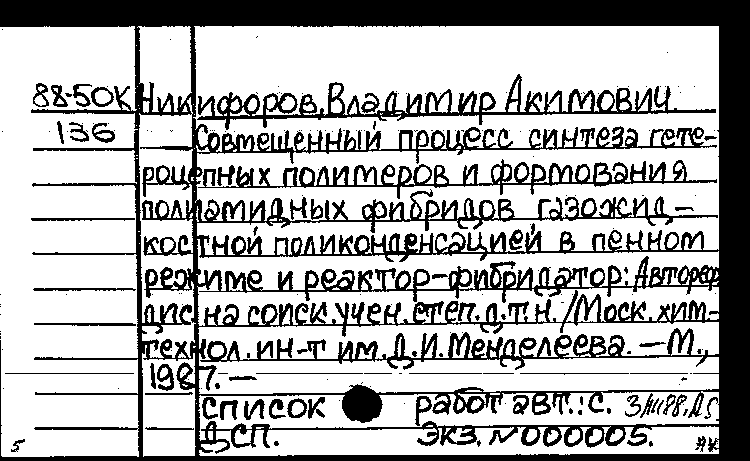 88-50К Никифоров, Владимир Акимович.
136 Совмещенный процесс синтеза гете-
роцепных полимеров и формования
полиамидных фибридов газожид-
костной поликонденсацией в пенном
режиме и реактор-фибридатор: Автореф
дис. на соиск. учен. степ. д.т.н. /Моск. хим-
технол. ин-т им. Д.И. Менделеева. — М.,
1987. —
список работ авт.: с.
ДСП. Экз. №000005.
5